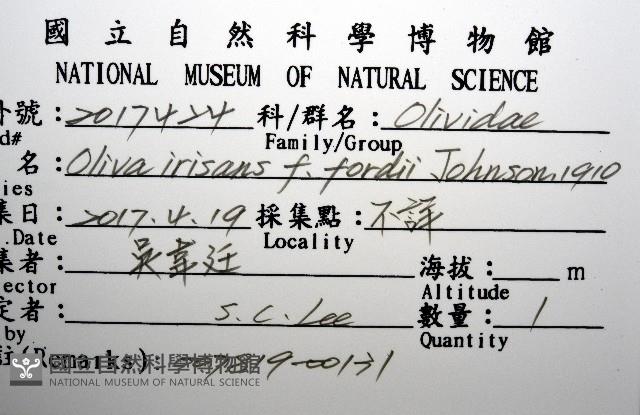 國立自然科學博物館
NATIONAL MUSEUM OF NATURAL SCIENCE
外號：20170424 科/群名：Olividae
d# Family/Group
名：Oliva irisans f. fordii Johnson, 1910
ies
集日：2017.4.19 採集點：不詳
.Date Locality
集者：吳韋廷 海拔： m
ector Altitude
定者：S. C. Lee 數量：1
by Quantity
註(Remarks):
國立自然科學博物館
NATIONAL MUSEUM OF NATURAL SCIENCE